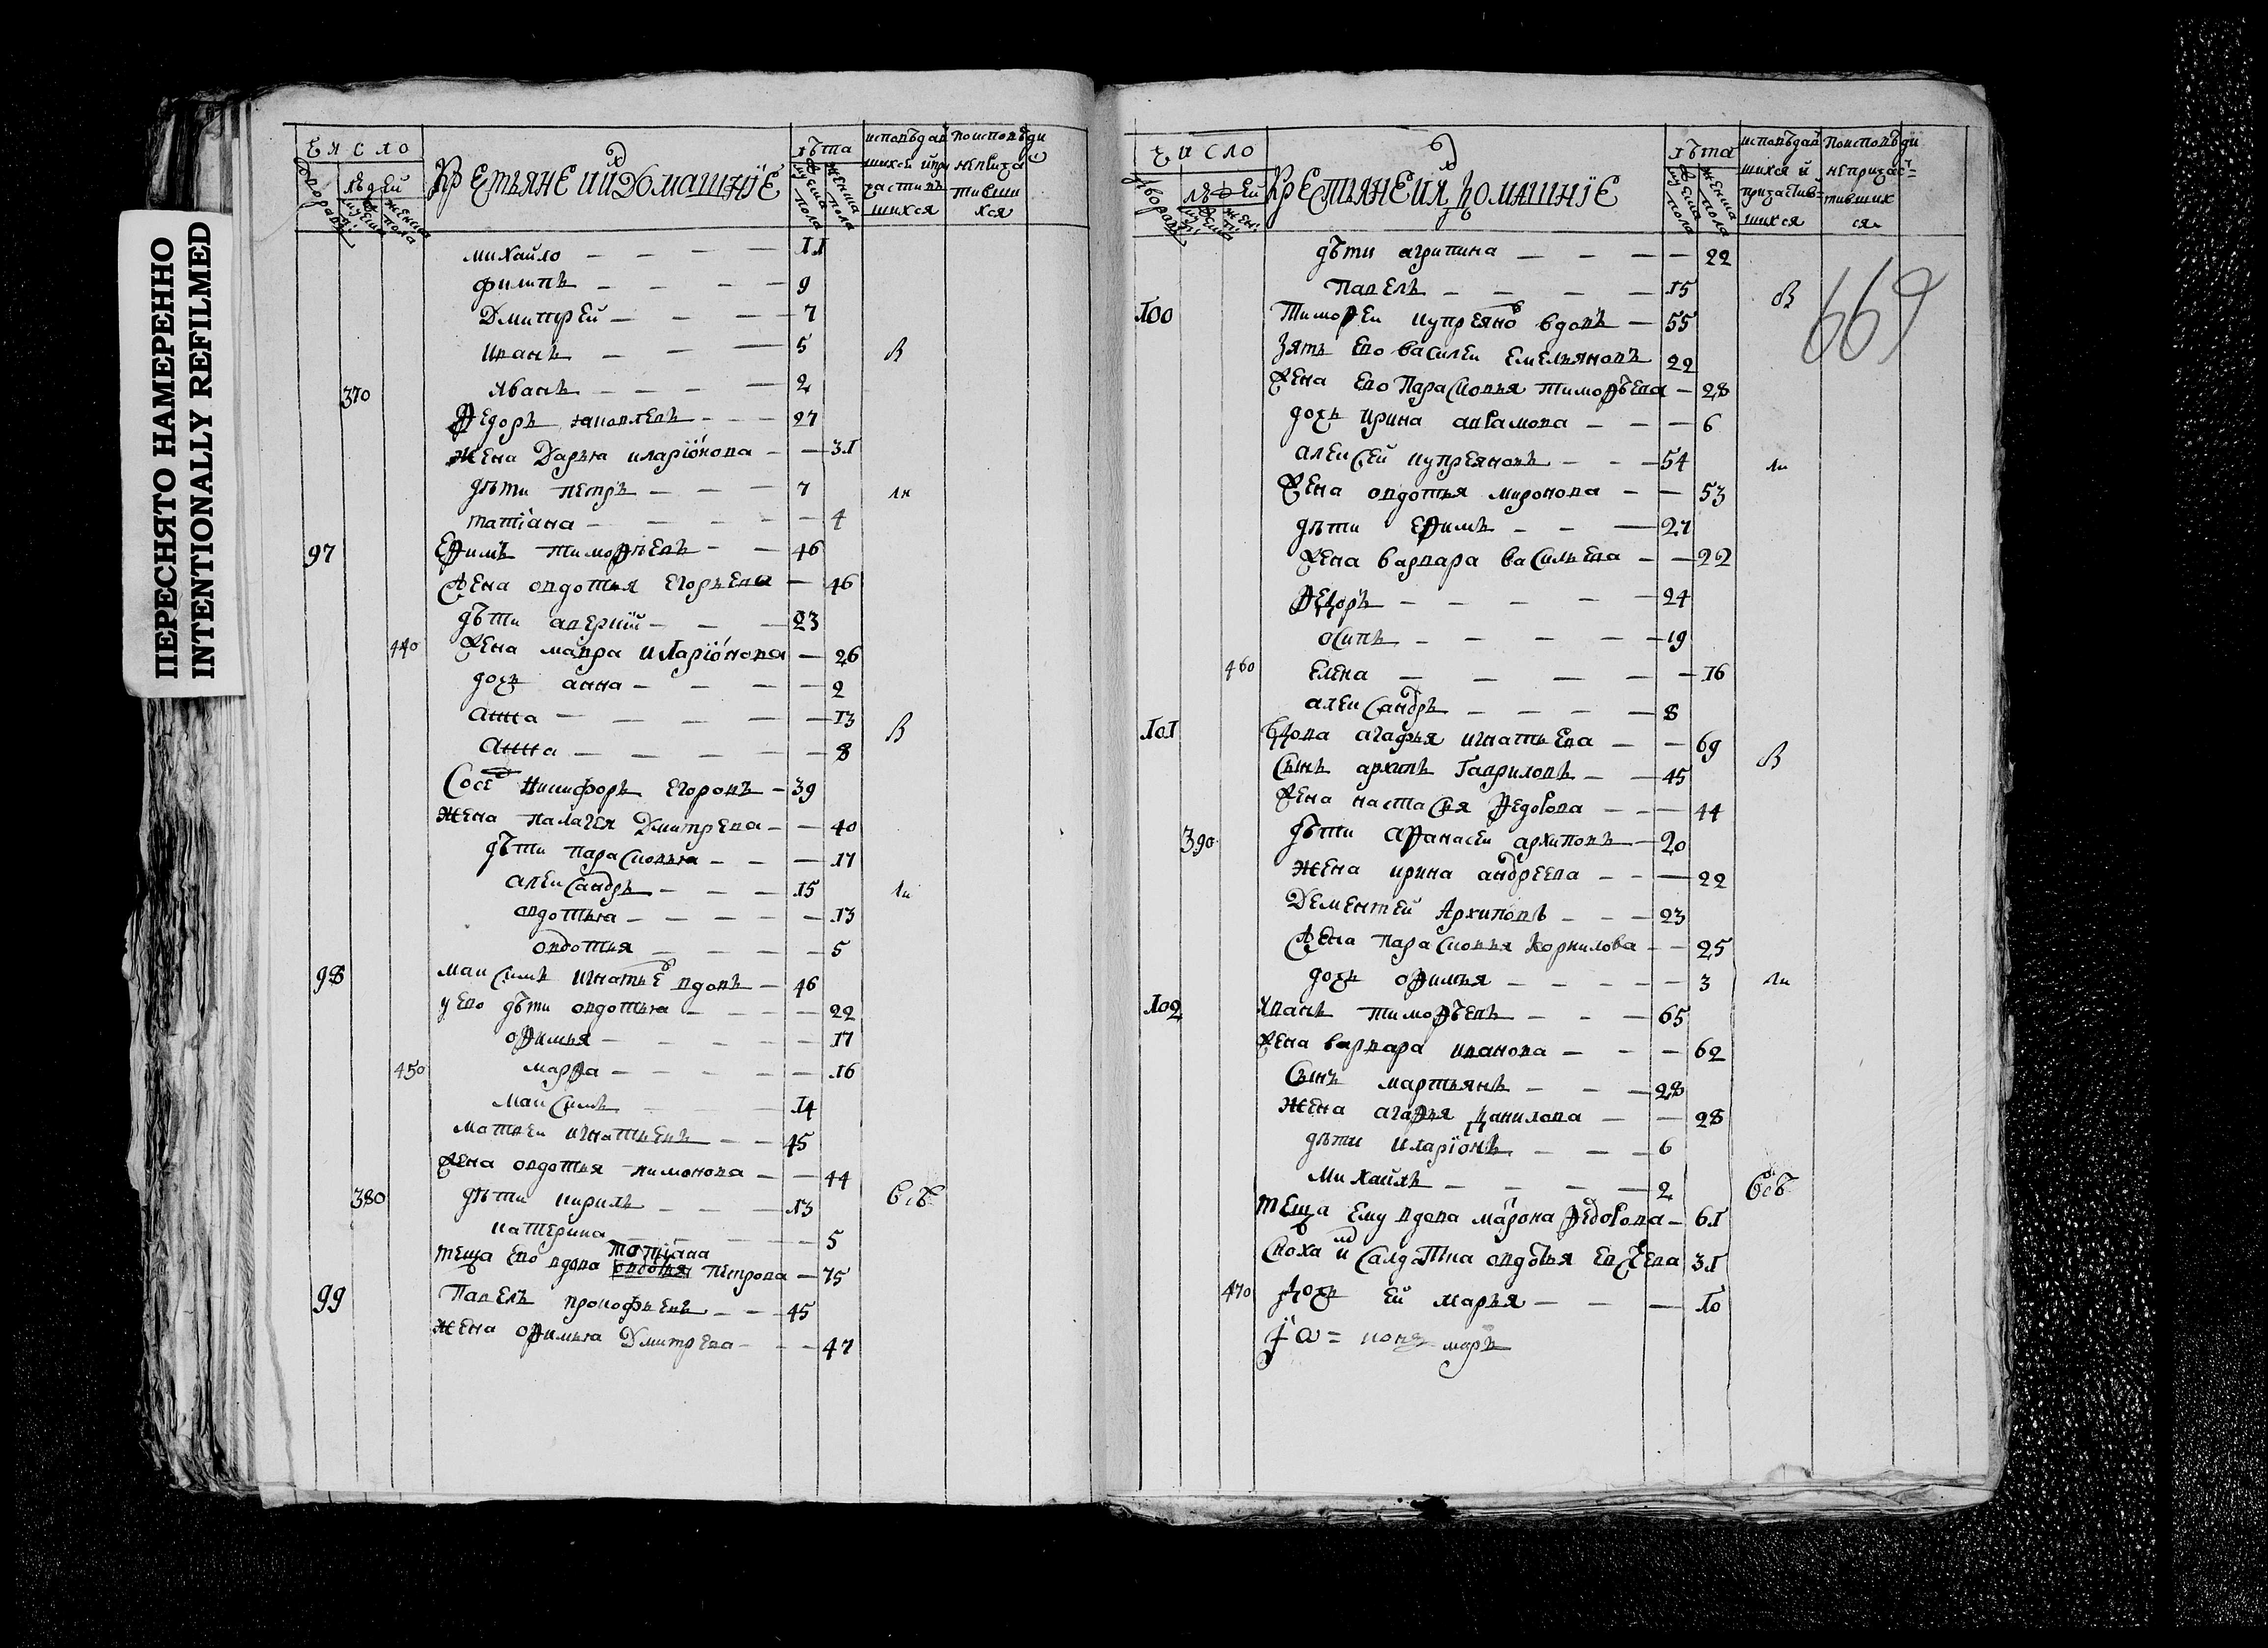 ПЕРЕСНЯТО НАМЕРЕННО
INTENTIONALLY REFILMED
число
людей
крестьяне и их домашнїе
лѣта
мужеска пола
женска пола
исповѣдав
шихся и при
частив
шихся
по исповѣди
неприча
тивши
хся
михайло — 11
филипъ — 9
Дмитрей — 7
иванъ — 5 В
370 иванъ — 2
Федоръ яковлевъ — 27
жена Дарья иларїонова — 31
дѣти петръ — 7 ли
татїана — 4
97 Ефимъ тимофѣевъ — 46
жена овдотья егорьева — 46
дѣти аверкїй — 23
440 жена мавра иларїонова — 26
дочь анна — 2
анна — 13 В
анна — 8
Сосед никифоръ егоровъ — 39
жена палагея Дмитрева — 40
дѣти парасковья — 17
александръ — 15 ли
овдотья — 13
овдотия — 5
98 максимъ игнатьев вдовъ — 46
у ево дѣти овдотья — 22
офимья — 17
450 марфа — 16
максимъ 14
матвеи игнатьевъ — 45
жена овдотья пимонова — 44
380 дѣти кирилъ — 13 всѣ
катерина — 5
татїана
теща ево вдова овдотья петрова — 75
99 Павелъ прокофьевъ — 45
жена офимья Дмитрева — 47
число
людей
крестьяне и их домашнїе
лѣта
мужеска пола
женска пола
исповѣдав
шихся и
причастив
шихся
по исповѣди
непричас
тивших
ся
дѣти агрипина — 22
Павелъ — 15 В 669
100 Тимофеи купреянов вдовъ — 55
зять ево василеи емельяновъ 22
жена ево Парасковья тимофѣева — 28
дочь ирина аврамова — 6
алексей купреяновъ — 54 ли
жена овдотья миронова — 53
дѣти ефимъ — 27
жена варвара васильева — 22
Федоръ — 24
осипъ — 19
460 елена — 16
александръ — 8
101 вдова агафья игнатьева — 69 В
сынъ архипъ гавриловъ — 45
жена настасья федорова — 44
390 дѣти афанасеи архиповъ — 20
жена ирина андреева — 22
Дементей архиповъ — 23
жена парасковья корнилова — 25
дочь офимья — 3 ли
102 иванъ тимофѣевъ — 65
жена варвара иванова — 62
сынъ мартьянъ — 28
жена агафья данилова — 28
дѣти иларїонъ — 6
михайлъ — 2 всѣ
теща ему вдова матрона федорова — 61
сноха их салдатка овдотья евсѣева 31
470 дочь ей марья — 10